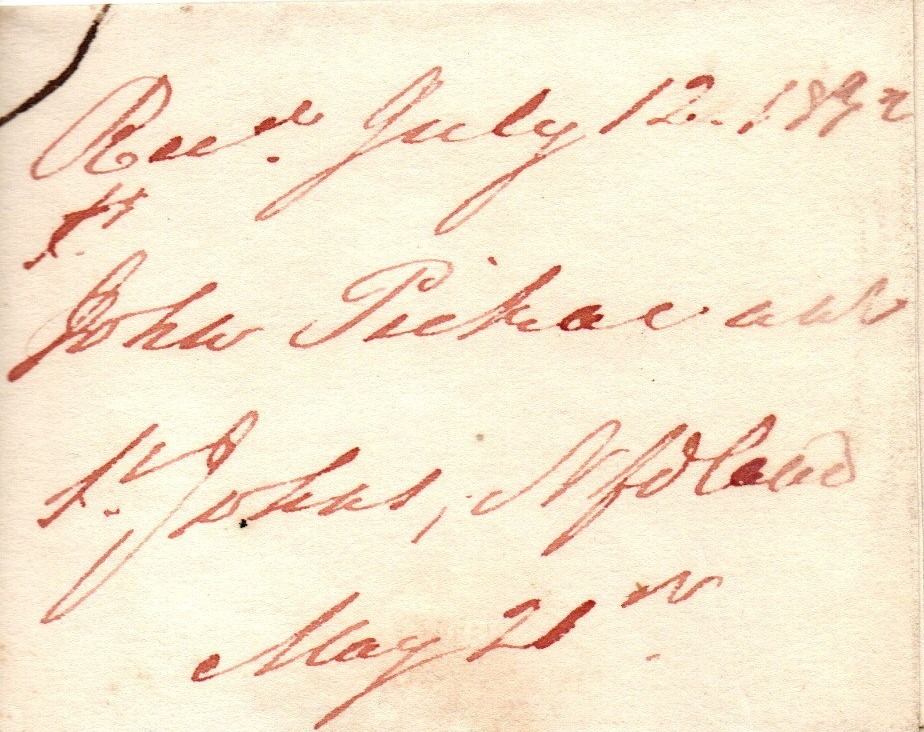 Recd. July 12. 1832
John Pickavant
St. Johns, Nfdland
May 21